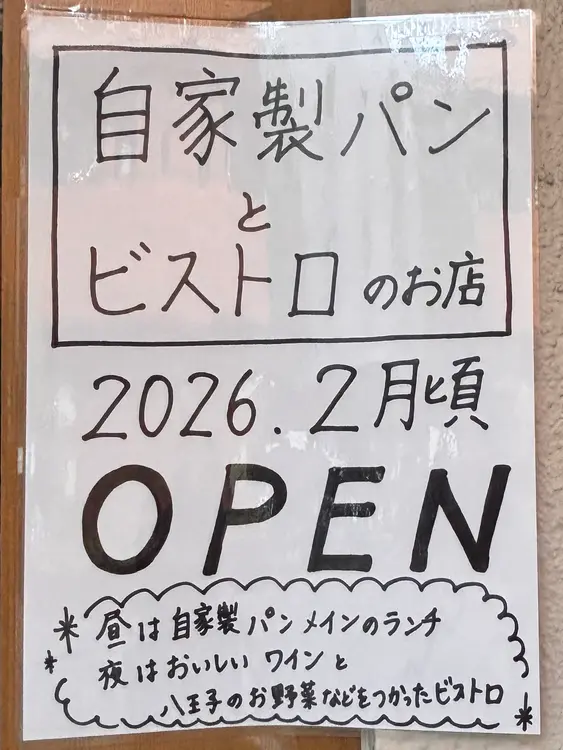 自家製パン
と
ビストロのお店
2026.2月頃
OPEN
昼は自家製パンメインのランチ
夜はおいしいワインと
八王子のお野菜などをつかったビストロ